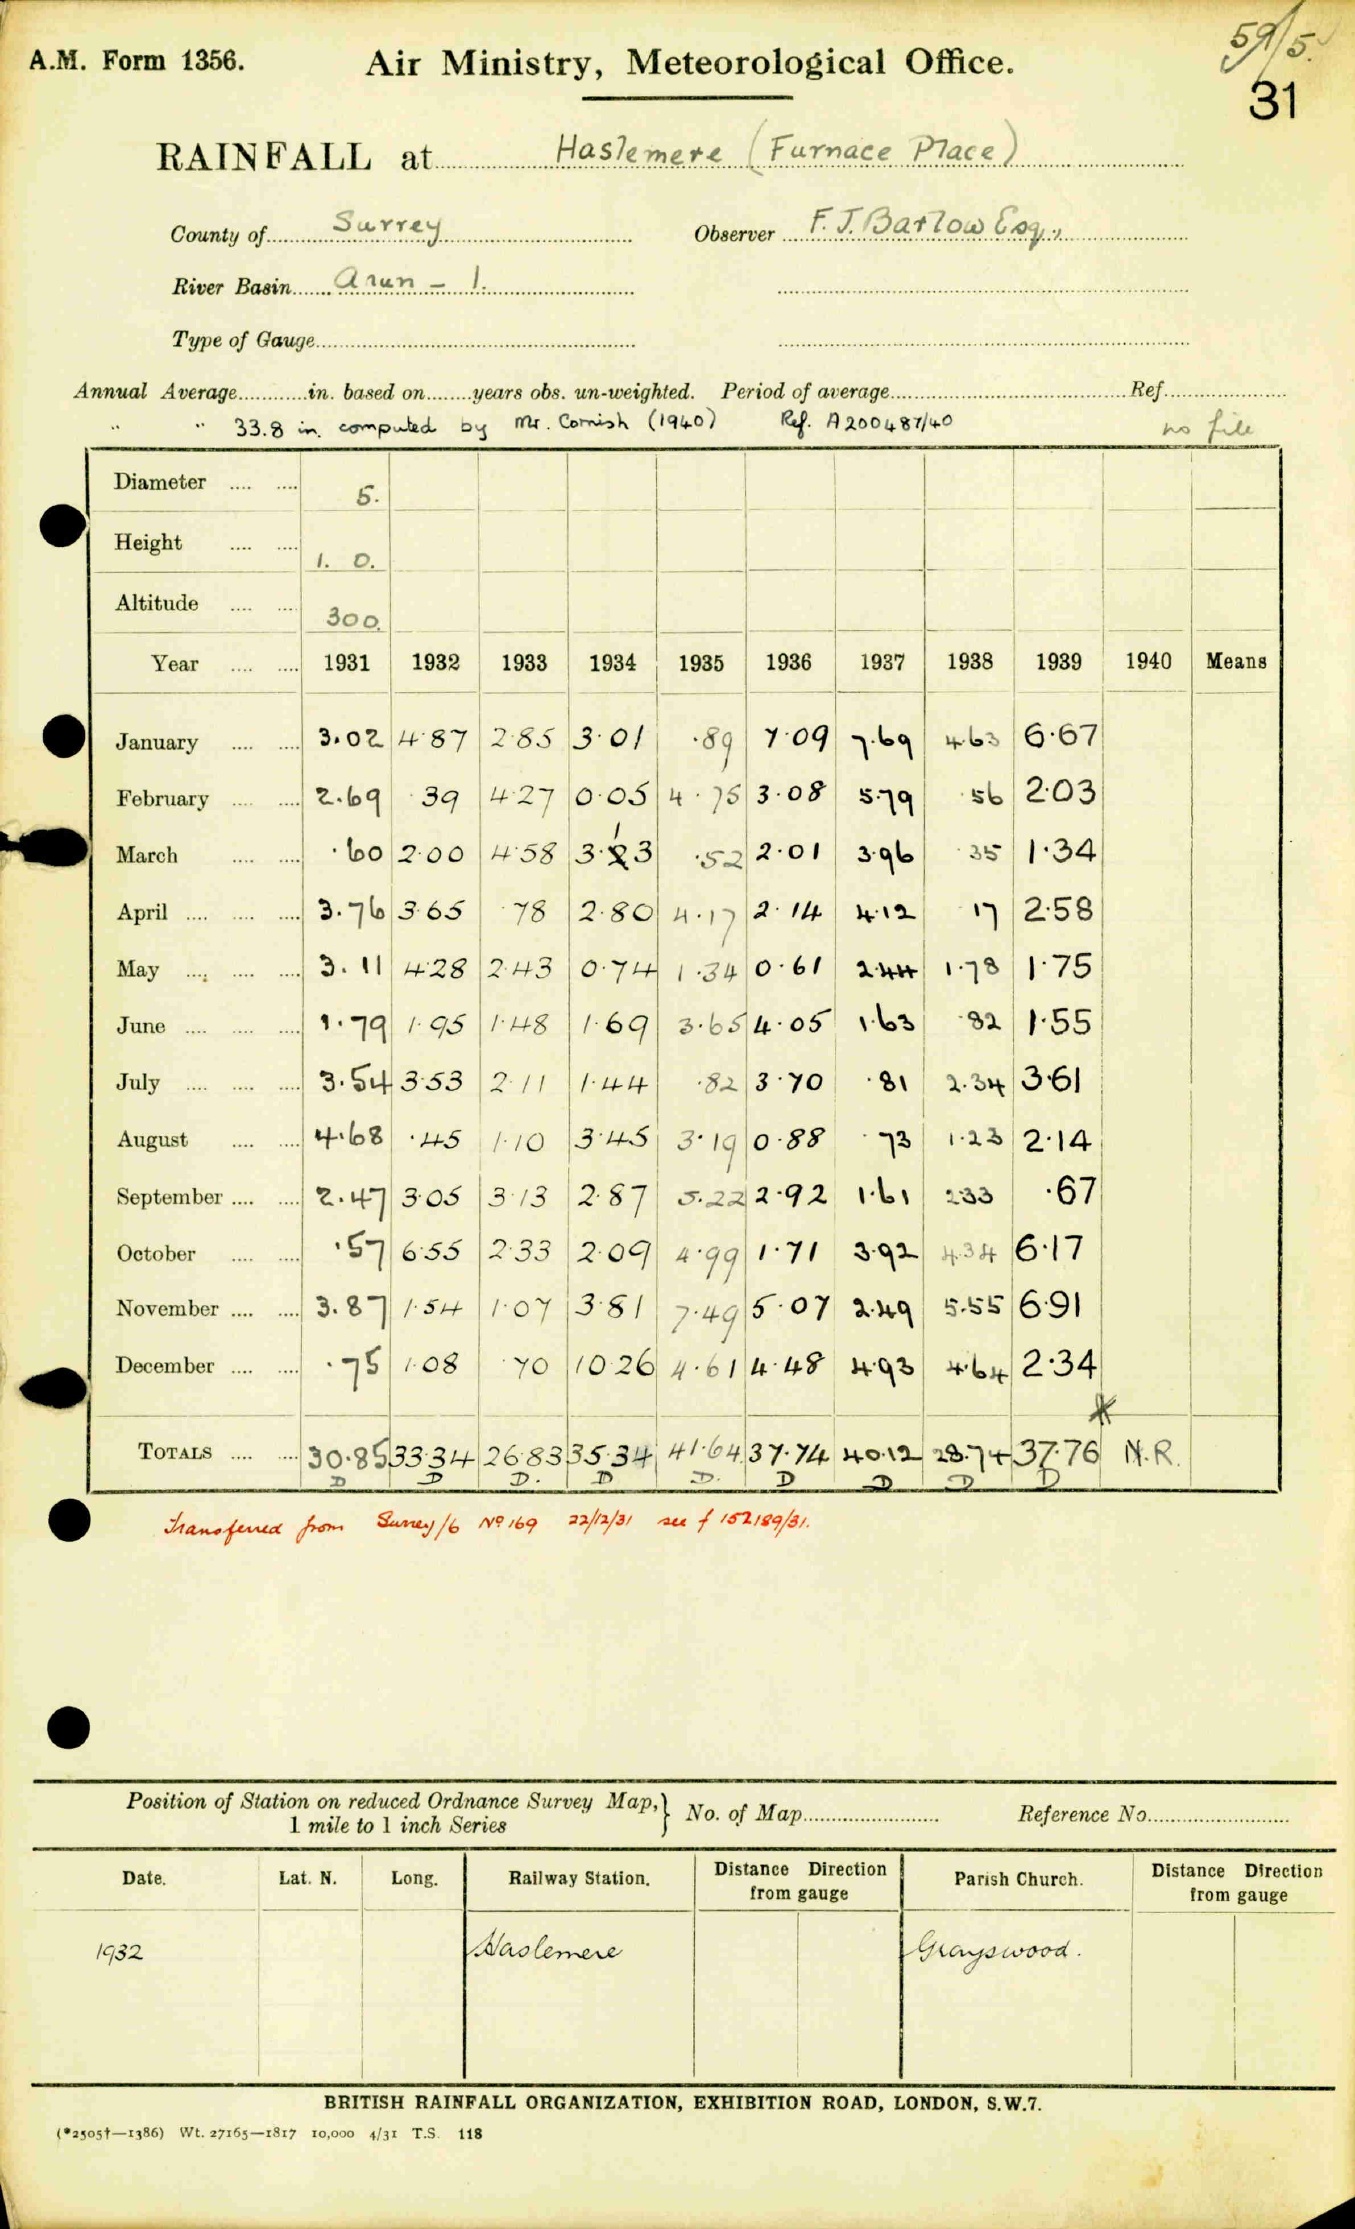 59/5.
A.M. Form 1356. Air Ministry, Meteorological Office.
31
RAINFALL at Haslemere (Furnace Place)
County of Surrey Observer F. J. Barlow Esq.,
River Basin Arun - 1.
Type of Gauge
Annual Average in. based on years obs. un-weighted. Period of average Ref.
" " 33.8 in. computed by Mr. Cornish (1940) Ref. A200487/40 no file
Diameter 5.
Height 1. 0.
Altitude 300.
Year 1931 1932 1933 1934 1935 1936 1937 1938 1939 1940 Means
January 3.02 4.87 2.85 3.01 .89 7.09 7.69 4.63 6.67
February 2.69 .39 4.27 0.05 4.75 3.08 5.79 .56 2.03
March .60 2.00 4.58 3.13 .52 2.01 3.96 .35 1.34
April 3.76 3.65 .78 2.80 4.17 2.14 4.12 .17 2.58
May 3.11 4.28 2.43 0.74 1.34 0.61 2.44 1.78 1.75
June 1.79 1.95 1.48 1.69 3.65 4.05 1.63 .82 1.55
July 3.54 3.53 2.11 1.44 .82 3.70 .81 2.34 3.61
August 4.68 .45 1.10 3.45 3.19 0.88 .73 1.23 2.14
September 2.47 3.05 3.13 2.87 5.22 2.92 1.61 2.33 .67
October .57 6.55 2.33 2.09 4.99 1.71 3.92 4.34 6.17
November 3.87 1.54 1.07 3.81 7.49 5.07 2.49 5.55 6.91
December .75 1.08 .70 10.26 4.61 4.48 4.93 4.64 2.34
TOTALS 30.85 33.34 26.83 35.34 41.64 37.74 40.12 28.74 37.76 N.R.
D D D. D D. D D D D
Transferred from Surrey/6 No 169 22/12/31 see f 152189/31.
Position of Station on reduced Ordnance Survey Map,} No. of Map Reference No.
1 mile to 1 inch Series
Date. Lat. N. Long. Railway Station. Distance Direction from gauge Parish Church. Distance Direction from gauge
1932 Haslemere Grayswood.
BRITISH RAINFALL ORGANIZATION, EXHIBITION ROAD, LONDON, S.W.7.
(*2505†—1386) Wt. 27165—1817 10,000 4/31 T.S. 118